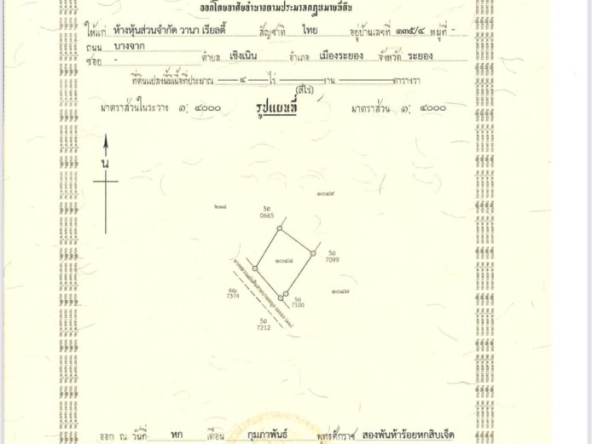 ออกโดยอาศัยอำนาจตามประมวลกฎหมายที่ดิน
ให้แก่ ห้างหุ้นส่วนจำกัด วานา เรียลตี้ สัญชาติ ไทย อยู่บ้านเลขที่ ๑๓๕/๔ หมู่ที่ -
ถนน บางจาก
ซอย - ตำบล เชิงเนิน อำเภอ เมืองระยอง จังหวัด ระยอง
ที่ดินแปลงนี้มีเนื้อที่ประมาณ ๔ ไร่ งาน ตารางวา
(สี่ไร่)
มาตราส่วนในระวาง ๑: ๔๐๐๐ รูปแผนที่ มาตราส่วน ๑: ๔๐๐๐
น
๒๑๘
๑๐๔๗
5อ
0665
5อ
7099
๑๐๔๘
๑๐๔๗
7374
5อ
7100
5อ
7212
ออก ณ วันที่ หก เดือน กุมภาพันธ์ พุทธศักราช สองพันห้าร้อยหกสิบเจ็ด